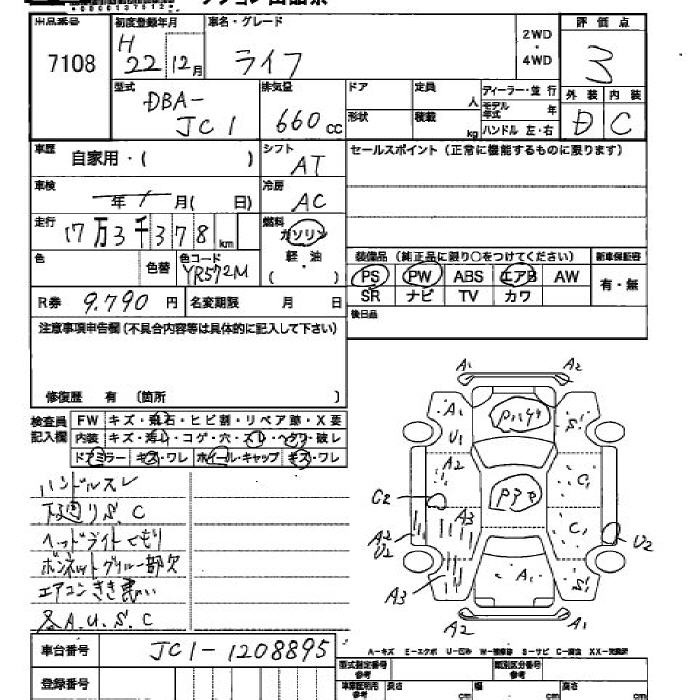 出品番号 初度登録年月 車名・グレード 2WD・4WD 評価点
7108 H22 12月 ライフ 3
型式 DBA-JC1 排気量 660cc ドア 定員 人 ディーラー・並行 外装 内装
形状 積載 kg モデル年式 年 ハンドル 左・右 D C
車歴 自家用・( ) シフト AT セールスポイント(正常に機能するものに限ります)
車検 年 月( 日) 冷房 AC
走行 17万3千378km 燃料 ガソリン 軽・油 ( )
色 色替 色コード YR572M 装備品(純正品に限り○をつけてください) 新車保証書
PS PW ABS エアB AW 有・無
R券 9,790円 名変期限 月 日 SR ナビ TV カワ
注意事項申告欄(不具合内容等は具体的に記入して下さい) 後日品
修復歴 有 (箇所 )
検査員記入欄 FW キズ・飛石・ヒビ割・リペア跡・X要
内装 キズ・汚レ・コゲ・穴・スレ・ヘタリ・破レ
ドアミラー キズ・ワレ ホイール・キャップ キズ・ワレ
ハンドルスレ
下廻りS.C
ヘッドライトくもり
ボンネットグリル一部欠
エアコンきき悪い
各A.U.S.C
A1 A2
A1 S1
U1
A2 C1
C2
A3 C1
A2
U2 U2
A3 A1 S1
A2 A1
A-キズ E-エクボ U-凹み W-補修跡 S-サビ C-腐食 XX-交換済
車台番号 JC1-1208895 型式指定番号 参考 類別区分番号 参考
登録番号 長さ cm 幅 cm 高さ cm